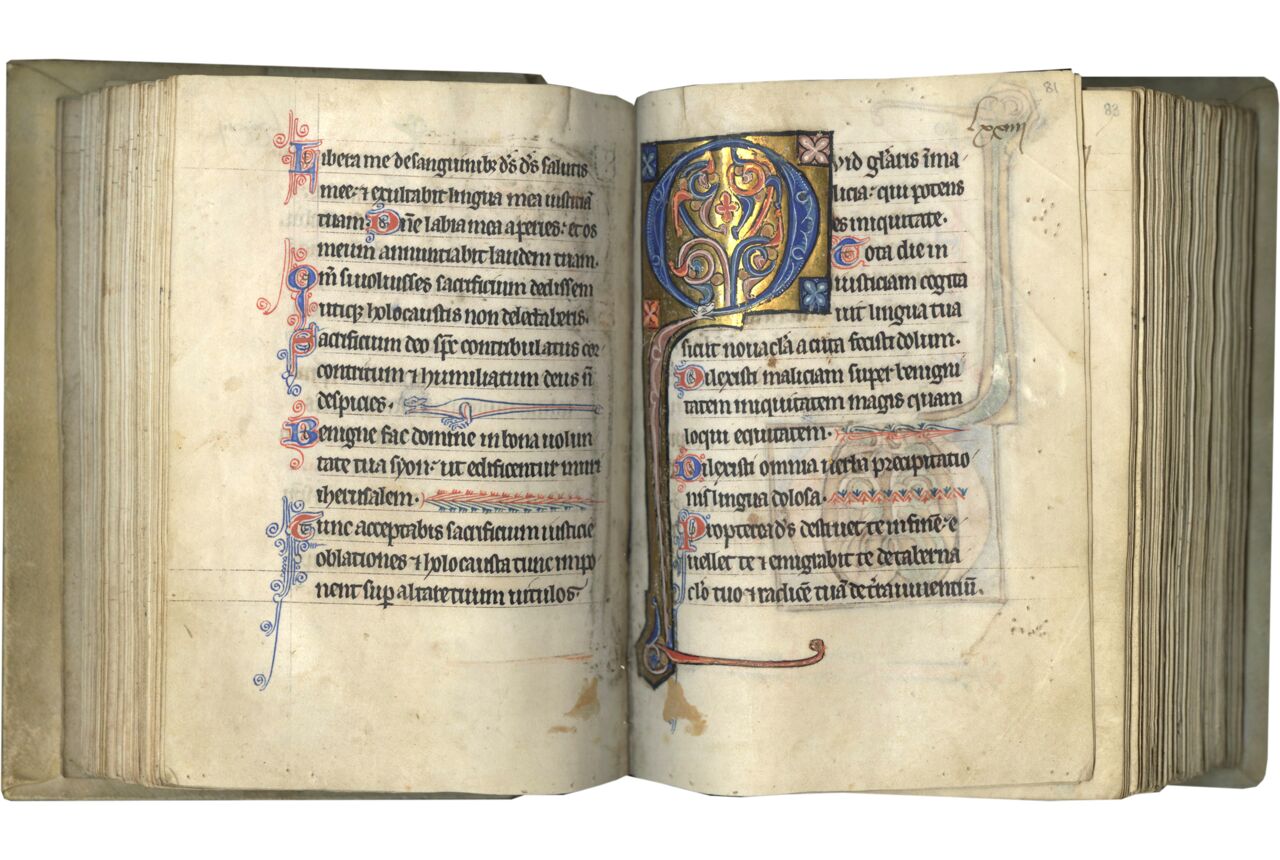 Libera me de sanguinib; d̄s d̄s salutis
mee: ⁊ exultabit lingua mea iusticiā
tuam. Dn̄e labia mea aperies: et os
meum annunciabit laudem tuam.
Qm̄ si uoluisses sacrificium dedissem
utiq; holocaustis non delectaberis.
Sacrificium deo sp̄c contribulatus cor
contritum ⁊ humiliatum deus n̄
despicies.
Benigne fac domine in bona uolun
tate tua syon: ut edificentur muri
iherusalem.
Tunc acceptabis sacrificium iusticie
oblationes ⁊ holocausta tunc impo
nent sup altare tuum uitulos.
81
83
Qvid gl̄aris ī ma
licia: qui potens
es iniquitate.
Tota die in
iusticiam cogita
uit lingua tua
sicut nouacl̄a acuta fecisti dolum.
Dilexisti maliciam super benigni
tatem iniquitatem magis quam
loqui equitatem.
Dilexisti omnia uerba precipitatio
nis lingua dolosa.
Propterea d̄s destruet te in finē: e
uellet te ⁊ emigrabit te de taberna
cl̄o tuo ⁊ radicē tuā de t̄ra uiuentiū.